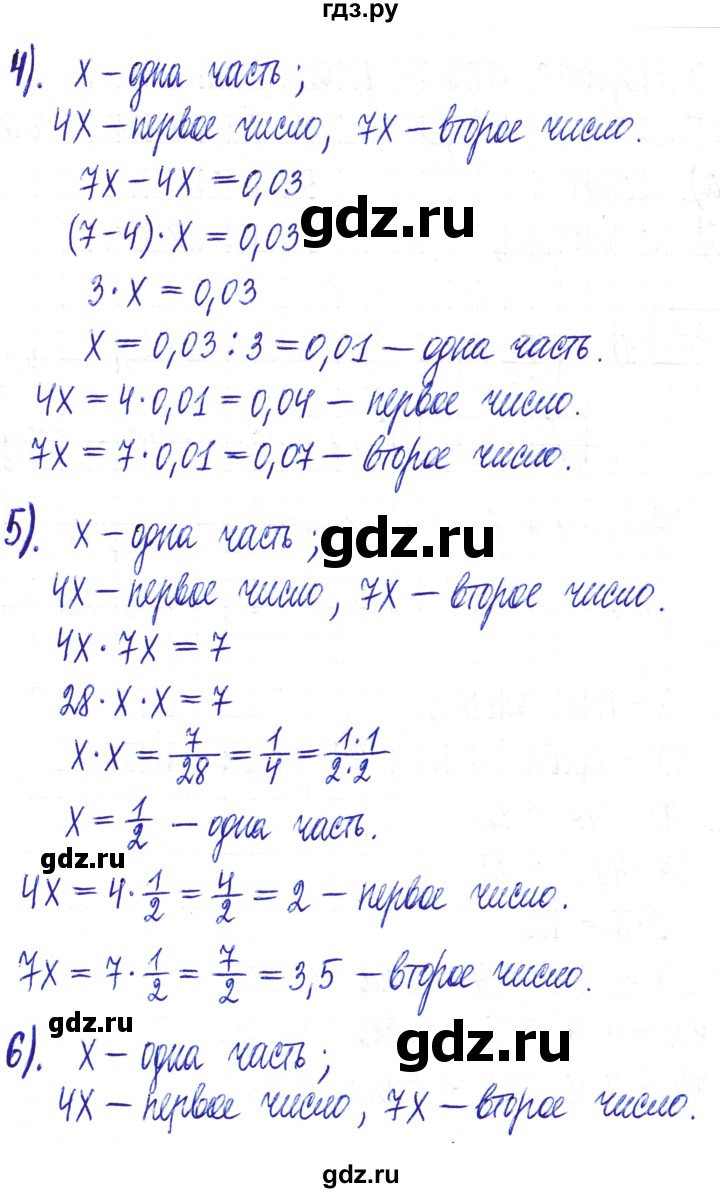 гдз.ру
4). x – одна часть;
4x – первое число, 7x – второе число.
7x – 4x = 0,03
gdz.ru
(7–4)·x = 0,03
3·x = 0,03
x = 0,03 : 3 = 0,01 – одна часть.
4x = 4·0,01 = 0,04 – первое число.
7x = 7·0,01 = 0,07 – второе число.
5). x – одна часть;
gdz.ru
4x – первое число, 7x – второе число.
4x · 7x = 7
28·x·x = 7
x·x = 7/28 = 1/4 = 1·1/2·2
x = 1/2 – одна часть.
gdz.ru
4x = 4·1/2 = 4/2 = 2 – первое число.
7x = 7·1/2 = 7/2 = 3,5 – второе число.
gdz.ru
6). x – одна часть;
gdz.ru
4x – первое число, 7x – второе число.
gdz.ru